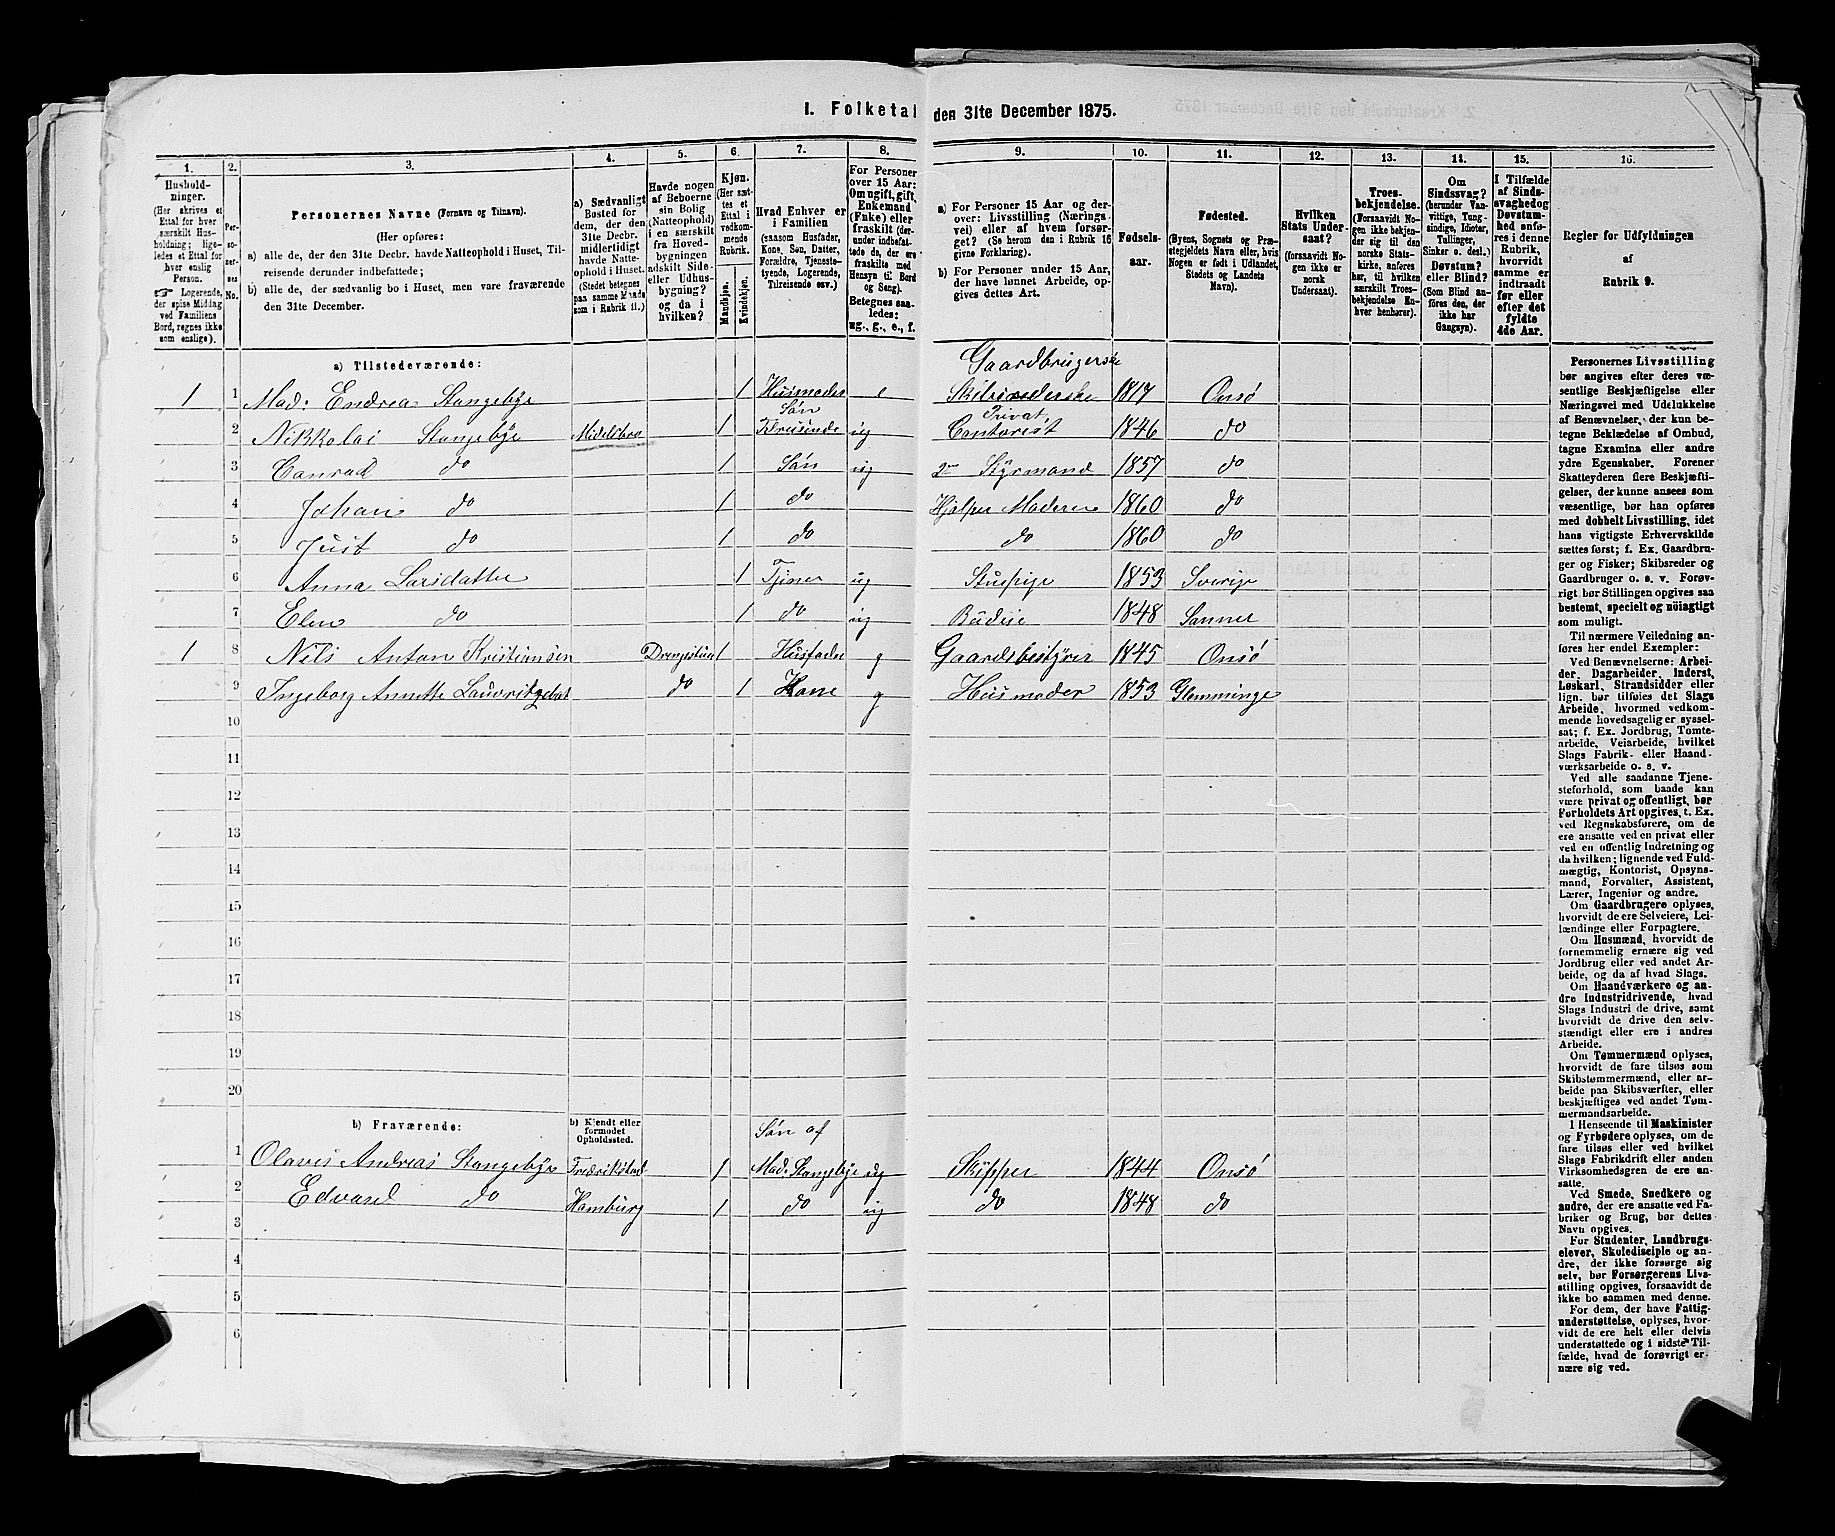 I. Folketal den 31te December 1875.
1.
2.
3.
4.
5.
6.
7.
8.
9.
10.
11.
12.
13.
14.
15.
16.
Hushold-
ninger.
(Her skrives et
Ettal for hver
særskilt Hus-
holdning; lige-
ledes et Ettal for
hver enslig
Person.
☞ Logerende,
der spise Middag
ved Familiens
Bord, regnes ikke
som enslige).
Per-
so-
ner-
nes
No.
Personernes Navne (Fornavn og Tilnavn).
(Her opføres:
a) alle de, der den 31te Decbr. havde Natteophold i Huset, Til-
reisende derunder indbefattede;
b) alle de, der sædvanlig bo i Huset, men vare fraværende
den 31te December.
a) Sædvanligt
Bosted for
dem, der den
31te Decbr.
midlertidigt
havde Natte-
ophold i Huset.
(Stedet betegnes
paa samme Maade
som i Rubrik 11.)
Havde nogen
af Beboerne
sin Bolig
(Natteophold)
i en særskilt
fra Hoved-
bygningen
adskilt Side-
eller Udhus-
bygning?
og da i
hvilken?
Kjøn.
(Her sæt-
tes et
Ettal i
vedkom-
mende
Rubrik.
Mandkjøn.
Kvindekjøn.
Hvad Enhver er
i Familien
(saasom Husfader,
Kone, Søn, Datter,
Forældre, Tjeneste-
tyende, Logerende,
Tilreisende osv.)
For Personer
over 15 Aar:
Om ugift, gift,
Enkemand
(Enke) eller
fraskilt (der-
under indbefat-
tede de, der ere
fraskilte med
Hensyn til Bord
og Seng).
Betegnes saa-
ledes:
ug., g., e., f.
a) For Personer 15 Aar og der-
over: Livsstilling (Nærings-
vei) eller af hvem forsør-
get? (Se herom den i Rubrik 16
givne Forklaring).
b) For Personer under 15 Aar,
der have lønnet Arbeide, op-
gives dettes Art.
Fødsels-
aar.
Fødested.
(Byens, Sognets og Præ-
stegjeldets Navn eller, hvis
Nogen er født i Udlandet,
Stedets og Landets
Navn).
Hvilken
Stats Under-
saat?
(forsaavidt No-
gen ikke er
norsk
Undersaat).
Troes-
bekjendelse.
(Forsaavidt No-
gen ikke bekjen-
der sig til den
norske Stats-
kirke, anføres
her, til hvilken
særskilt Troes-
bekjendelse En-
hver henhører).
Om
Sindssvag?
(herunder Van-
vittige, Tung-
sindige, Idioter,
Tullinger,
Sinker o. desl.)
Døvstum?
eller Blind?
(Som Blind an-
føres den, der
ikke har
Gangsyn).
I Tilfælde
af Sinds-
svaghed og
Døvstum-
hed anfø-
res i denne
Rubrik,
hvorvidt
samme er
indtraadt
før eller
efter det
fyldte
4de Aar.
Regler for Udfyldningen
af
Rubrik 9.
a) Tilstedeværende:
Gaardbrugerske
1 1 Mad: Endrea Stangebye 1 Husmoder e Skibsrederske 1817 Onsø
2 Nikkolai Stangebye 1 Søn ug Privat Contorist 1846 do
3 Conrad do 1 Søn ug Styrmand 1857 do
4 Johan do 1 do Hjælper Moderen 1860 do
5 Just do 1 do do 1860 do
6 Anna Larsdatter 1 Tjener ug Stuepige 1853 Sverige
7 Elen do 1 do ug Budeie 1848 Sanner
1 8 Nils Anton Kristiansen Drengestuen 1 Husfader g Gaardsbestyrer 1845 Onsø
9 Ingeborg Annette do 1 Kone g Husmoder 1853 Glemminge
10
11
12
13
14
15
16
17
18
19
20
b) Fraværende:
b) Kjendt eller
formodet
Opholdssted.
Søn af
1 Olaves Andreas Stangebye Fredrikstad 1 Mad: Stangebye ug Skipper 1844 Onsø
2 Edvard do Hamburg 1 do ug do 1848 do
3
4
5
6
Personernes Livsstilling
bør angives efter deres væ-
sentlige Beskjæftigelse eller
Næringsvei med Udelukkelse
af Benævnelser, der kun be-
tegne Beklædelse af Ombud,
tagne Examina eller andre
ydre Egenskaber. Forener
Skatteyderen flere Beskjæfti-
gelser, der kunne ansees som
væsentlige, bør han opføres
med dobbelt Livsstilling, idet
hans vigtigste Erhvervskilde
sættes først; f. Ex. Gaardbru-
ger og Fisker; Skibsreder og
Gaardbruger o. s. v. Forøv-
rigt bør Stillingen opgives saa
bestemt, specielt og nöiagtigt
som muligt.
Til nærmere Veiledning an-
føres her endel Exempler:
Ved Benævnelserne: Arbei-
der, Dagarbeider, Inderst,
Løskarl, Strandsidder eller
lign. bør tilføies det Slags
Arbeide, hvormed vedkom-
mende hovedsagelig er syssel-
sat; f. Ex. Jordbrug, Tomte-
arbeide, Veiarbeide, hvilket
Slags Fabrik- eller Haand-
værksarbeide o. s. v.
Ved alle saadanne Tjene-
steforhold, som baade kan
være privat og offentligt, bør
Forholdets Art opgives, t. Ex.
ved Regnskabsførere, om de
ere ansatte ved en privat eller
ved en offentlig Indretning og
da hvilken; lignende ved Fuld-
mægtig, Kontorist, Opsyns-
mand, Forvalter, Assistent,
Lærer, Ingeniør og andre.
Om Gaardbrugere oplyses,
hvorvidt de ere Selveiere, Lei-
lændinge eller Forpagtere.
Om Husmænd, hvorvidt de
fornemmelig ernære sig ved
Jordbrug eller ved andet Ar-
beide, og da af hvad Slags.
Om Haandværkere og an-
dre Industridrivende, hvad
Slags Industri de drive, samt
hvorvidt de drive den selv-
stændigt eller ere i andres
Arbeide.
Om Tømmermænd oplyses,
hvorvidt de fare tilsøs som
Skibstømmermænd, eller ar-
beide paa Skibsværfter, eller
beskjæftiges ved andet Tøm-
mermandsarbeide.
I Henseende til Maskinister
og Fyrbødere oplyses, om de
fare tilsøs eller ved hvilket
Slags Fabrikdrift eller anden
Virksomhedsgren de ere an-
satte.
Ved Smede, Snedkere og
andre, der ere ansatte ved Fa-
briker og Brug, bør dettes
Navn opgives.
For Studenter, Landbrugs-
elever, Skoledisciple og an-
dre, der ikke forsørge sig
selv, bør Forsørgerens Livs-
stilling opgives, forsaavidt de
ikke bo sammen med denne.
For dem, der have Fattig-
understøttelse, oplyses, hvor-
vidt de ere helt eller delvis
understøttede og i sidste Til-
fælde, hvad de forøvrigt er-
nære sig ved.